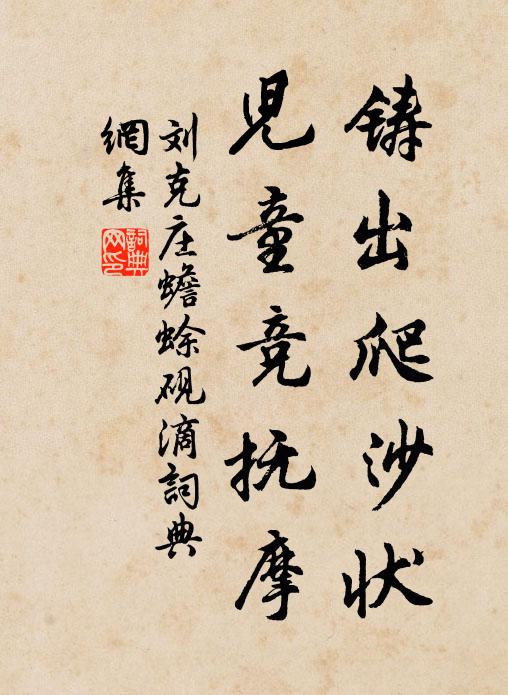 铸出爬沙状
児童竞抚摩
刘克庄蟾蜍砚滴詞典
網集
詞典
网印